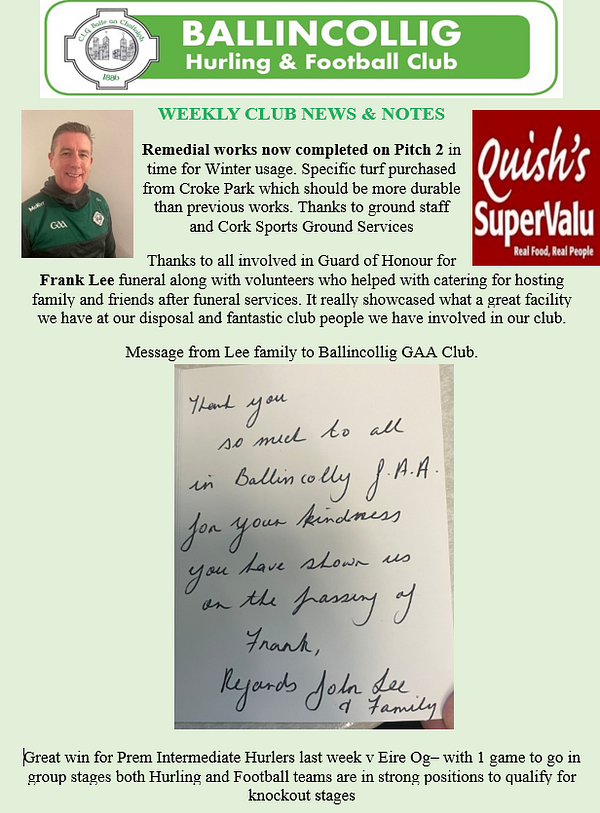 C.L.G. Baile an Chollaigh
1886
BALLINCOLLIG
Hurling & Football Club
WEEKLY CLUB NEWS & NOTES
McKeever
GAA
Quish's
SuperValu
Real Food, Real People
Remedial works now completed on Pitch 2 in
time for Winter usage. Specific turf purchased
from Croke Park which should be more durable
than previous works. Thanks to ground staff
and Cork Sports Ground Services
Thanks to all involved in Guard of Honour for
Frank Lee funeral along with volunteers who helped with catering for hosting
family and friends after funeral services. It really showcased what a great facility
we have at our disposal and fantastic club people we have involved in our club.
Message from Lee family to Ballincollig GAA Club.
Thank you
so much to all
in Ballincolly G.A.A.
for your kindness
you have shown us
on the passing of
Frank,
Regards John Lee
& Family
Great win for Prem Intermediate Hurlers last week v Eire Og– with 1 game to go in
group stages both Hurling and Football teams are in strong positions to qualify for
knockout stages